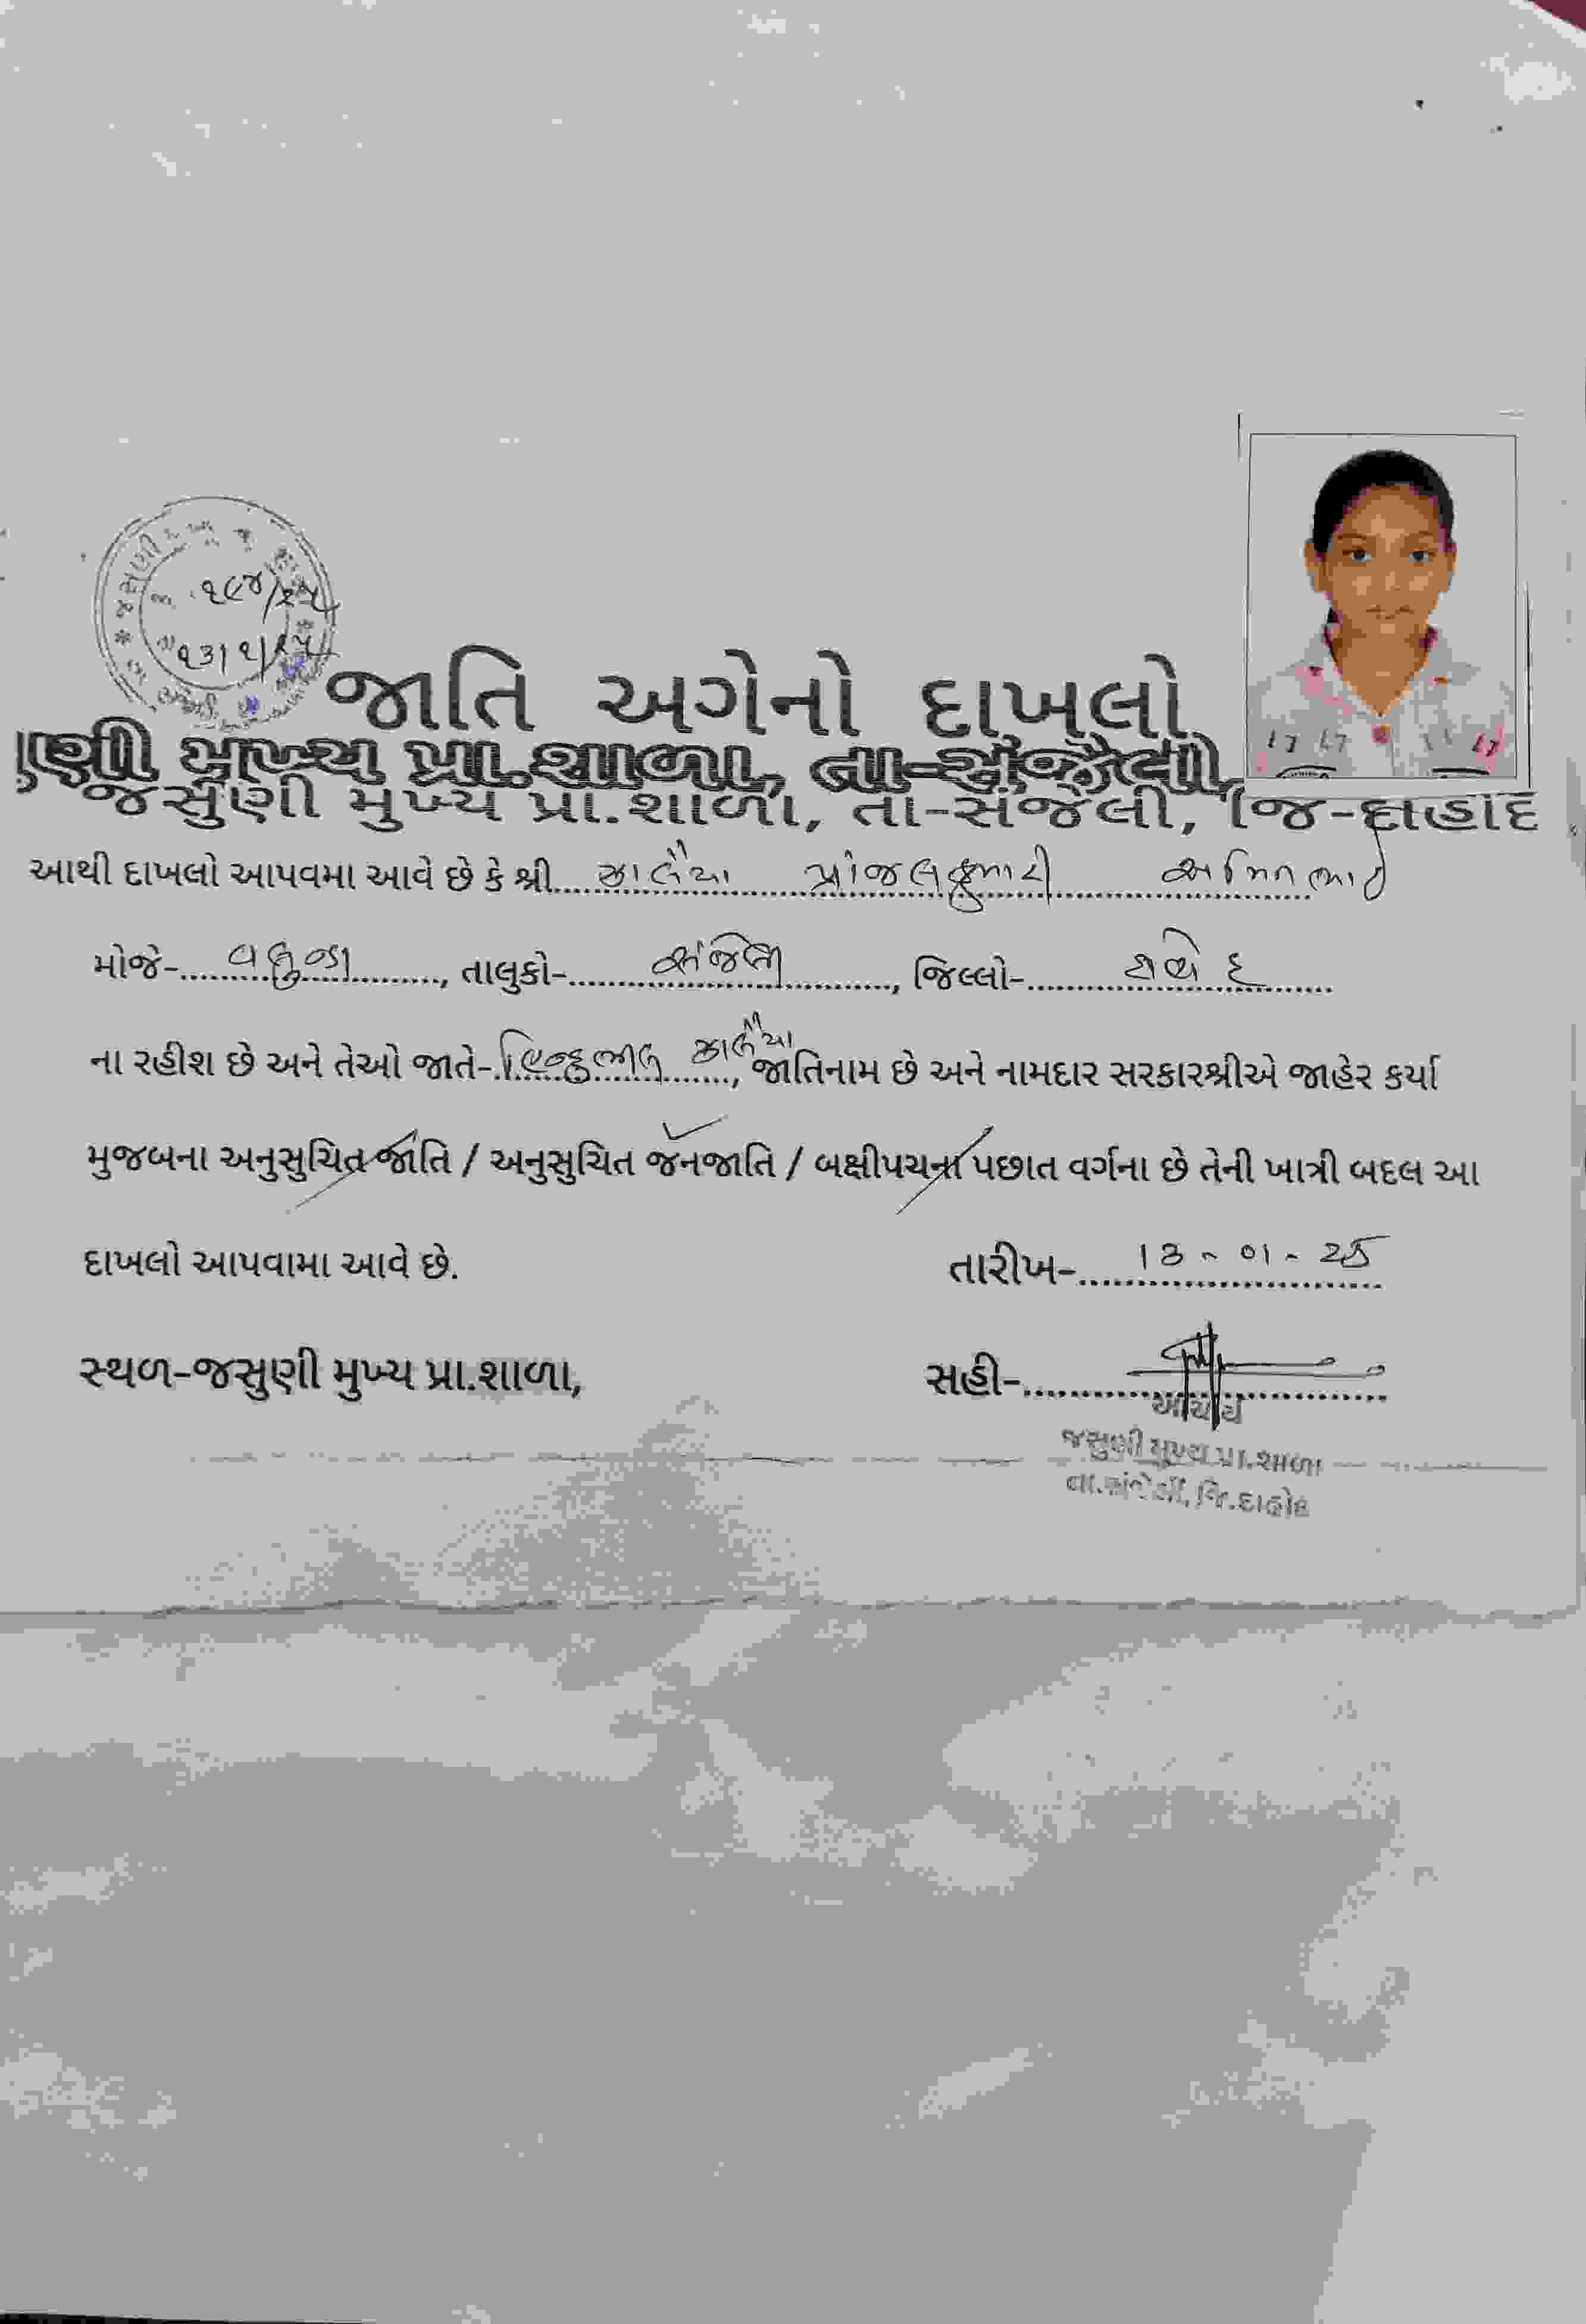 જસુણી
૧૯૪/૨૫
૧૩/૧/૨૫
જાતિ અગેનો દાખલો
ણી મુખ્ય પ્રા.શાળા, તા-સંજેલી,
જસુણી મુખ્ય પ્રા.શાળા, તા-સંજેલી, જિ-દાહોદ
આથી દાખલો આપવમા આવે છે કે શ્રી.... પ્રાંજલકુમારી
મોજે-...................., તાલુકો-....સંજેલી...., જિલ્લો-....દાહોદ....
ના રહીશ છે અને તેઓ જાતે-....હિન્દુ ભીલ...., જાતિનામ છે અને નામદાર સરકારશ્રીએ જાહેર કર્યા
મુજબના અનુસુચિત જાતિ / અનુસુચિત જનજાતિ / બક્ષીપચના પછાત વર્ગના છે તેની ખાત્રી બદલ આ
દાખલો આપવામા આવે છે. તારીખ-....13-01-25
સ્થળ-જસુણી મુખ્ય પ્રા.શાળા, સહી-....................
આચાર્ય
જસુણી મુખ્ય પ્રા.શાળા
તા.સંજેલી, જિ.દાહોદ